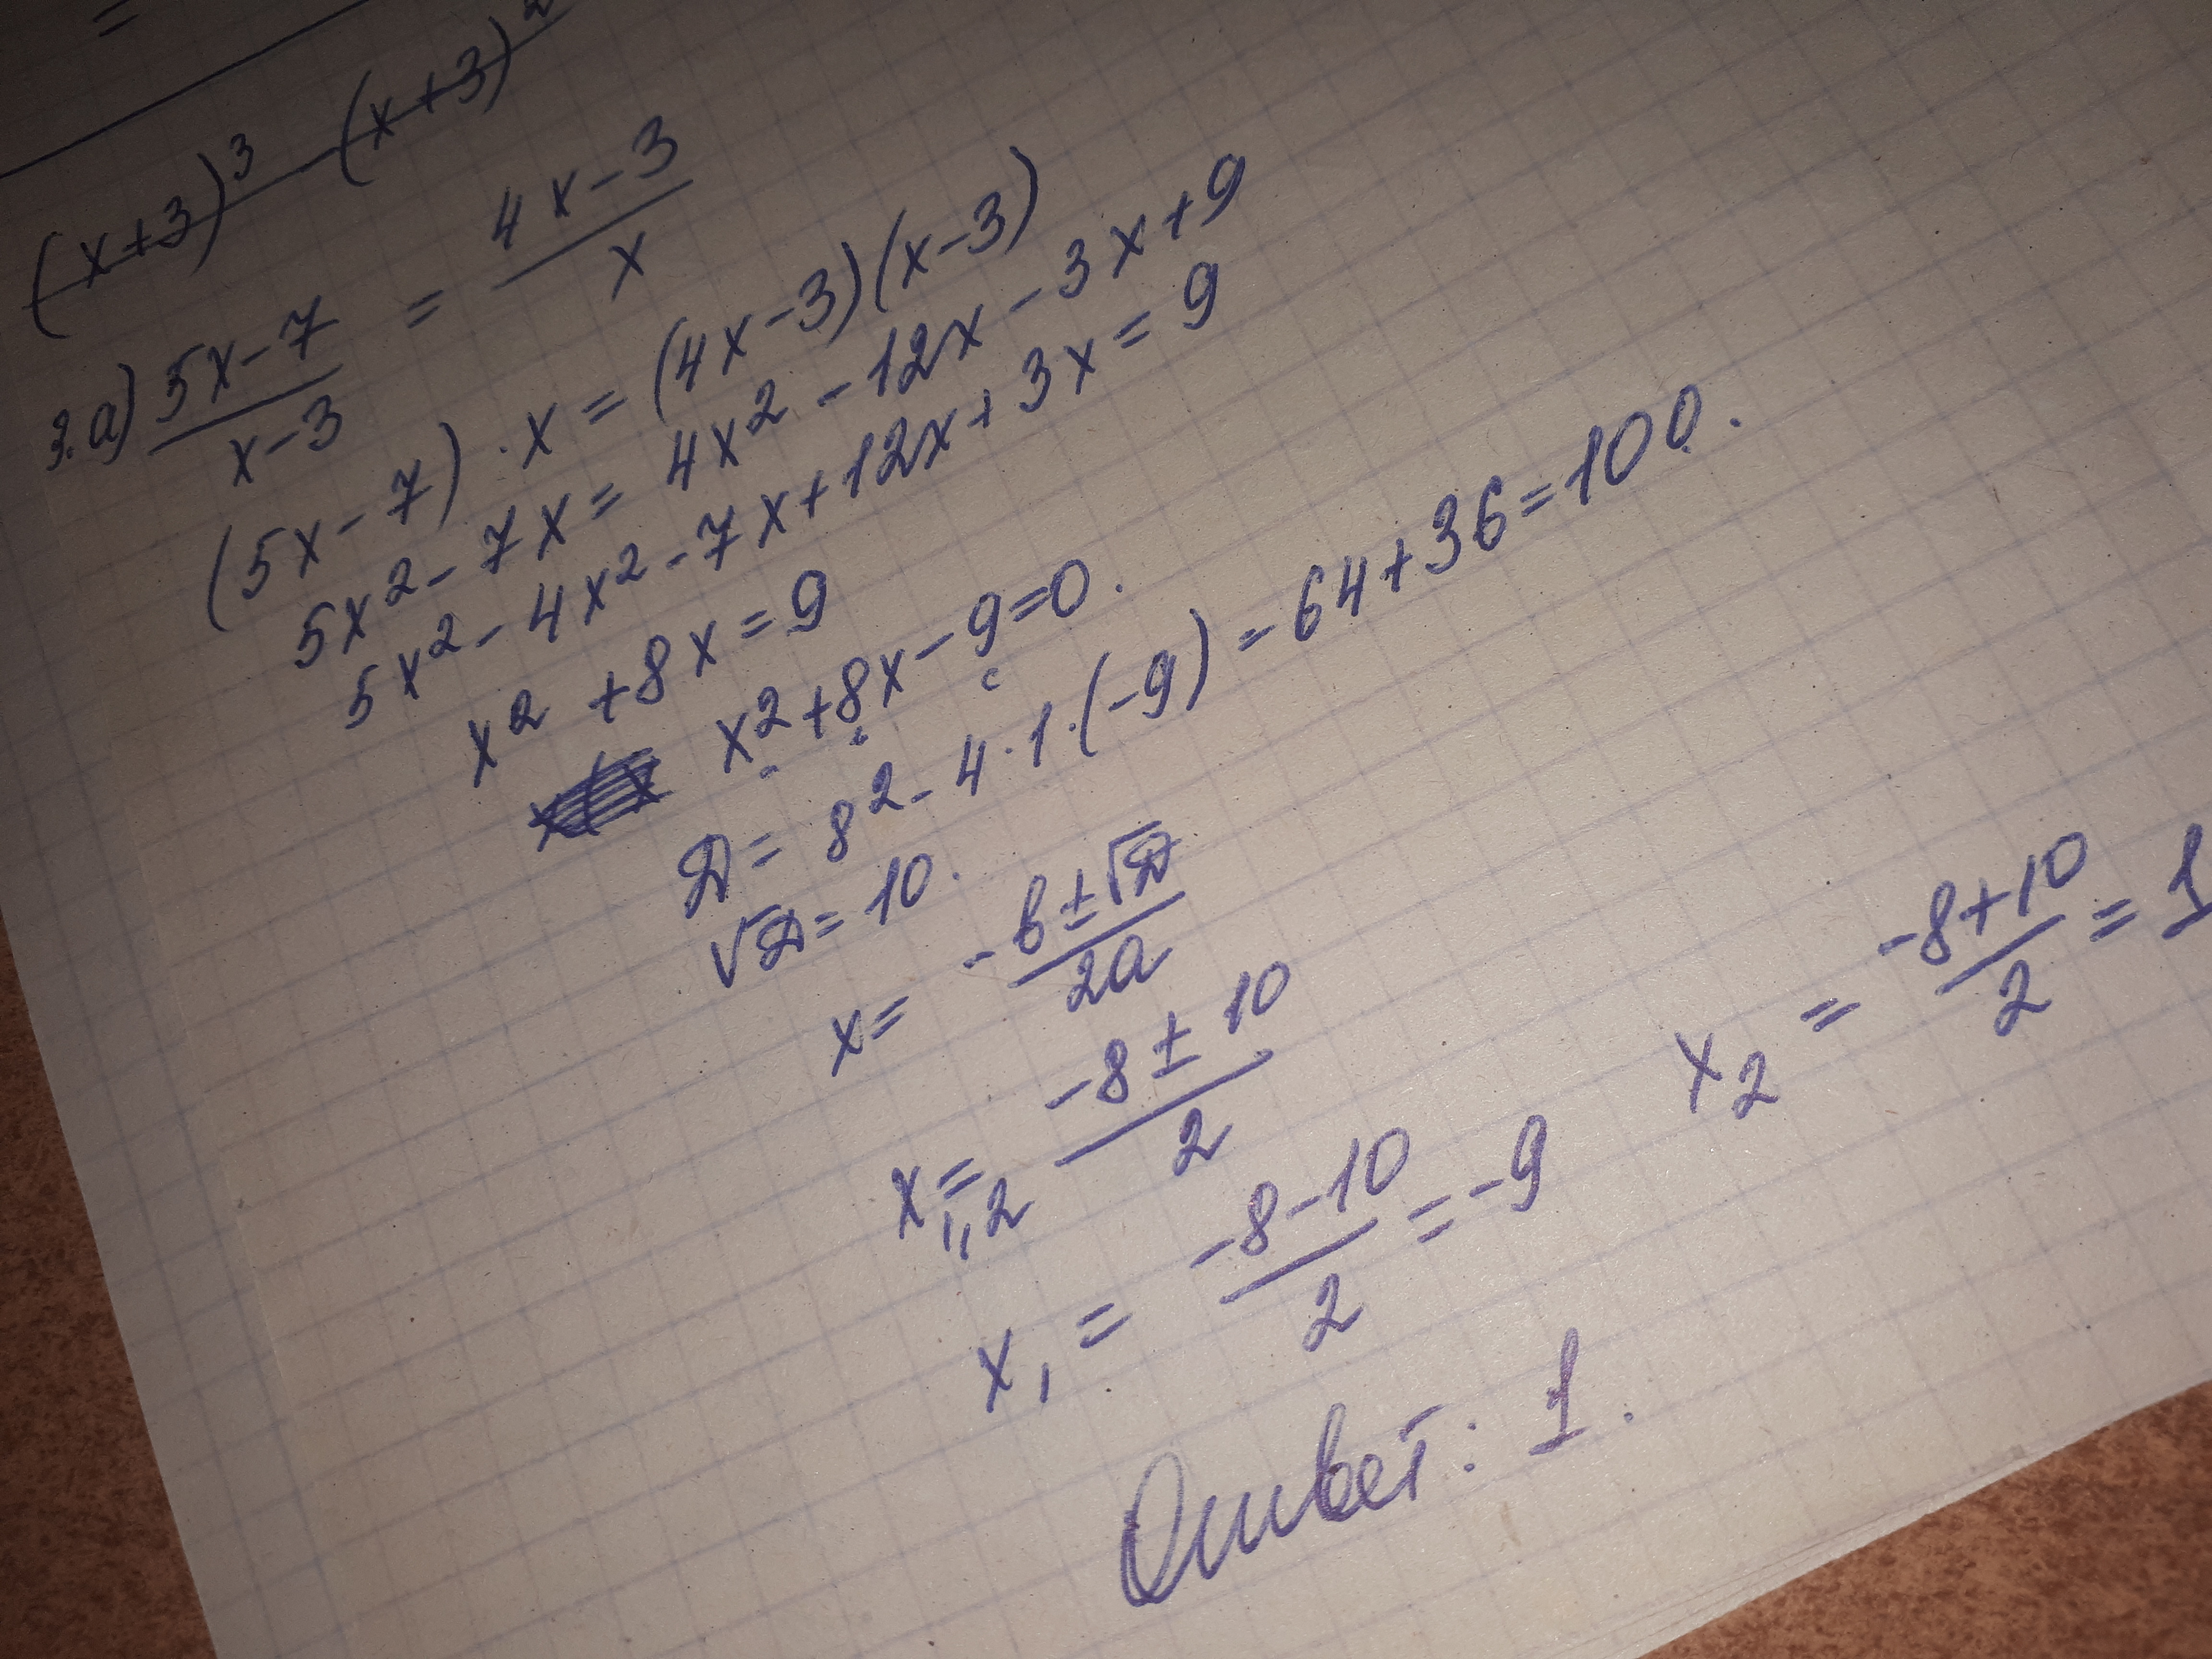 =
(x+3)³ - (x+3)²
3.a) (5x-7)/(x-3) = (4x-3)/x
(5x-7)·x = (4x-3)(x-3)
5x²-7x = 4x²-12x-3x+9
5x²-4x²-7x+12x+3x=9
x²+8x=9
x²+8x-9=0.
c
D = 8²-4·1·(-9) = 64+36=100.
√D=10.
x= (-b±√D)/2a
x₁,₂= (-8±10)/2
x₁ = (-8-10)/2 = -9
x₂ = (-8+10)/2 = 1
Ответ: 1.